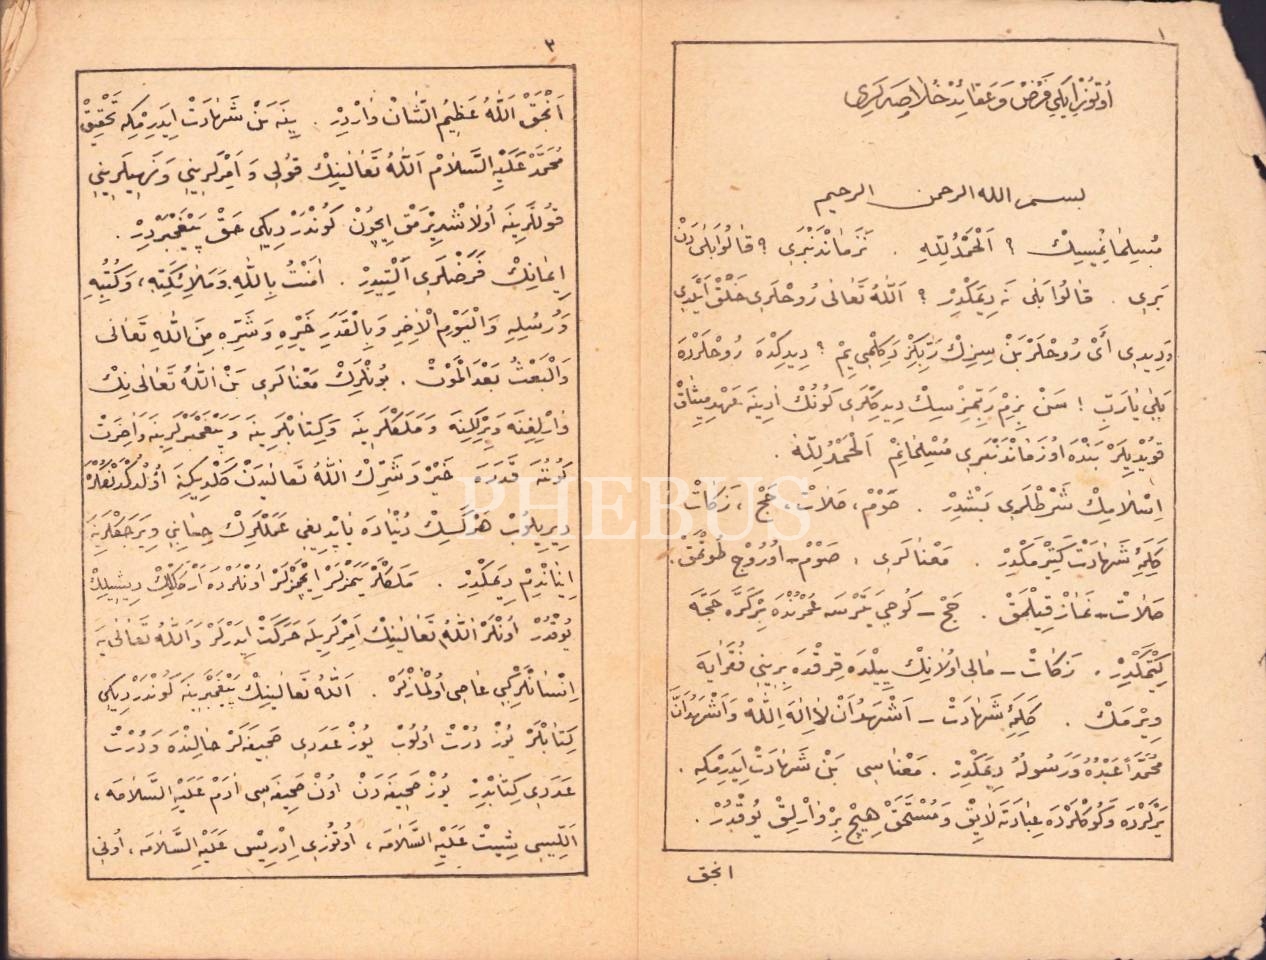 ١
اوتوز ایکی فرض و عقائد خلاصه لری
بسم الله الرحمن الرحیم
مسلمانمیسیك ؟ الحمد لله . نه زماندنبری ؟ قالوا بلی دن
بری . قالوا بلی نه دیمکدر ؟ الله تعالی روحلری خلق ایلدی
و دیدی ای روحلر بن سزك ربکز دکلمی یم ؟ دیدکده روحلرده
بلی یا رب ! سن بزم ربمزسك دیدکلری کونك ادینه عهد میثاق
قویدیلر بنده او زماندنبری مسلمانم الحمد لله .
اسلامك شرطلری بشدر . صوم ، صلات ، حج ، زکات
کلمۀ شهادت کتیرمکدر . معنالری ، صوم - اوروج طوتمق .
صلات - نماز قیلمق . حج - کوجی یترسه عمرنده بر کره حجه
کتمکدر . زکات - مالی اولانك ییلده قرقده برینی فقرایه
ویرمك . کلمۀ شهادت - اشهد ان لا اله الله واشهد ان
محمدا عبده ورسوله دیمکدر . معناسی بن شهادت ایدرمکه .
یرلرده و کوکلرده عبادته لایق و مستحق هیچ بر وارلق یوقدر .
انجق
٢
انجق الله عظیم الشان واردر . ینه بن شهادت ایدرمکه تحقیق
محمد علیه السلام الله تعالینك قولی و امرلرینی و نهیلرینی
قوللرینه اولاشدیرمق ایچون کوندردیکی حق پیغمبردر .
ایمانك فرضلری آلتیدر . امنت بالله وملائکته ، وکتبه
ورسله والیوم الاخر وبالقدر خیره وشره من الله تعالی
والبعث بعد الموت . بونلرك معنالری بن الله تعالی نك
وارلغنه و برلکنه و ملکلرینه و کتابلرینه و پیغمبرلرینه و اخرت
کوننه قدره خیر و شرك الله تعالیدن کلدیکنه اولدکدنصکره
دیریلوب هرکسك دنیاده یاپدیغی عمللرك حسابنی ویره جکلرینه
ایناندیم دیمکدر . ملکلر یمزلر ایچمزلر اونلرده ارککلك دیشیلك
یوقدر اونلر الله تعالینك امرلریله حرکت ایدرلر والله تعالی یه
انسانلر کبی عاصی اولمازلر . الله تعالینك پیغمبرینه کوندردیکی
کتابلر یوز درت اولوب یوز عددی صحیفه لر حالنده و درت
عددی کتابدر یوز صحیفه دن اون صحیفه سی ادم علیه السلامه ،
اللیسی شیت علیه السلامه ، اوتوزی ادریس علیه السلامه ، اونی
PHEBUS